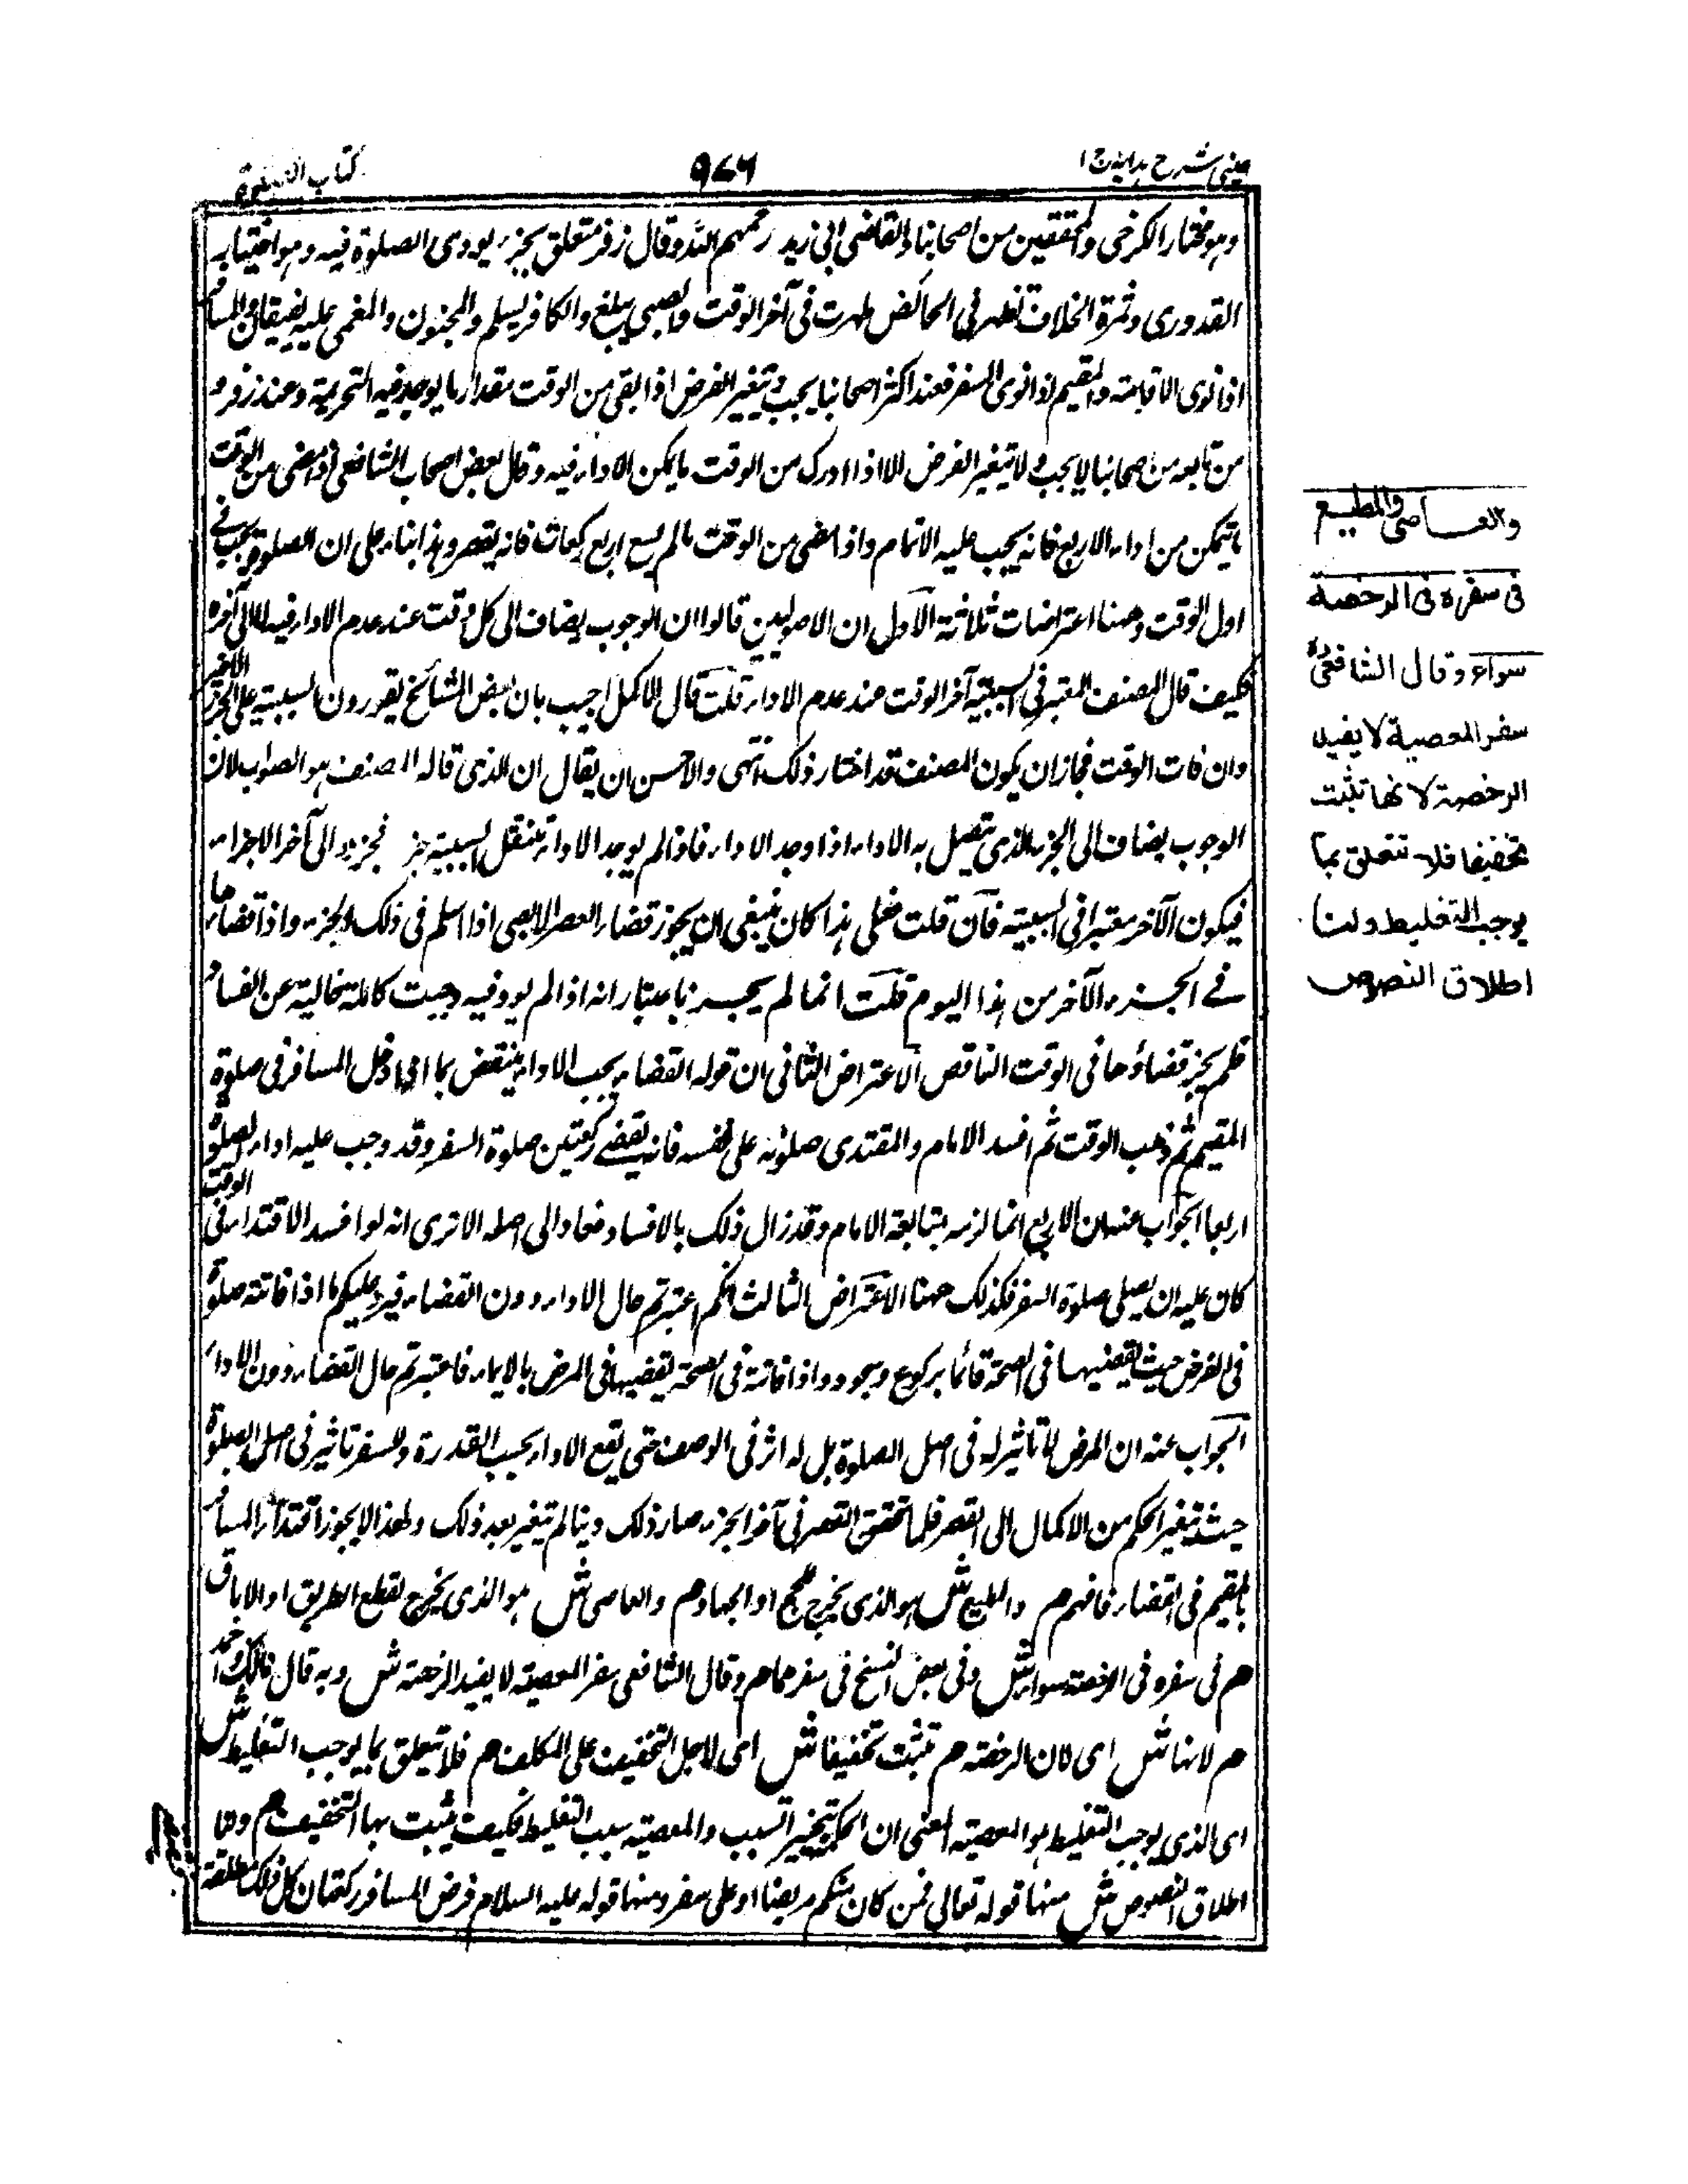 عینی شرح ہدایہ ج ۱
۹۷۶
کتاب الصلوة
وہو مختار الکرخی والمحققین من اصحابنا والقاضی ابی زید رحمہم اللہ وقال زفر متعلق بجزء یودی الصلوة فیہ وہو اختیار بہ
القدوری وثمرة الخلاف تظہر فی الحائض طہرت فی آخر الوقت والصبی یبلغ والکافر یسلم والمجنون والمغمی علیہ یفیقان والمسافر
اذا نوی الاقامتہ والمقیم اذا نوی السفر فعند اکثر اصحابنا یجب ویتغیر الفرض اذا بقی من الوقت مقدار ما یوجد فیہ التحریمة وعند زفر و
من تابعہ من اصحابنا لا یجب ولا یتغیر الفرض الا اذا ادرک من الوقت ما یمکن الاداء فیہ وقال بعض اصحاب الشافعی اذا مضی من الوقت
ما یتمکن من اداء الاربع فانہ یجب علیہ الاتمام واذا مضی من الوقت مالم یسع اربع رکعات فانہ یقصر وہذا بناء علی ان الصلوة تجب فے
اول الوقت وہہنا اعتراضات ثلاثة الاول ان الاصولیین قالوا ان الوجوب یضاف الی کل وقت عند عدم الاداء فیہ لا الی آخرہ
فکیف قال المصنف المعتبر فی السببیة آخر الوقت عند عدم الاداء قلت قال الاکمل اجیب بان بعض المشائخ یقررون السببیة علی الجزء الاخیر
وان فات الوقت فجاز ان یکون المصنف قد اختار ذلک انتہی والاحسن ان یقال ان الذی قالہ المصنف ہو الصواب لان
الوجوب یضاف الی الجزء الذی یتصل بہ الاداء اذا وجد الاداء فاذا لم یوجد الاداء تنتقل السببیة جز فجزء الی آخر الاجزاء
فیکون الآخر معتبرا فی السببیة فان قلت فعلی ہذا کان ینبغی ان یجوز قضاء العصر الصبی اذا اسلم فی ذلک الجزء واذا قضاہا
فے الجزء الآخر من ہذا الیوم قلت انما لم یجز باعتبار انہ اذا لم یود فیہ وجبت کاملة خالیة عن الفساد
فلم یجز قضاؤھا فی الوقت الناقص الاعتراض الثانی ان قولہ القضاء یجب الاداء ینتقض بما اذا دخل المسافر فی صلوة
المقیم ثم ذہب الوقت ثم افسد الامام والمقتدی صلوتہ علی نفسہ فانہ یقضے رکعتین صلوة السفر وقد وجب علیہ اداء الصلوة
اربعا الجواب عنہ ان الاربع انما لزمہ بمتابعة الامام وقد زال ذلک بالافساد فعاد الی اصلہ الا تری انہ لو افسد الاقتداء فی الوقت
کان علیہ ان یصلی صلوة السفر فکذلک ہہنا الاعتراض الثالث انکم اعتبرتم حال الاداء دون القضاء فیرد علیکم ما اذا فاتتہ صلوة
فی المرض حیث یقضیہا فی الصحة قائما برکوع وسجود واذا فاتتہ فی الصحة یقضیہا فی المرض بالایماء فاعتبرتم حال القضاء دون الاداء
الجواب عنہ ان المرض لا تاثیر لہ فی اصل الصلوة بل لہ اثر فی الوصف حتی یقع الاداء بحسب القدرة وللسفر تاثیر فی اصل الصلوة
حیث یتغیر الحکم من الاکمال الی القصر فلما تحقق القصر فی آخر الجزء صار ذلک دینا لم یتغیر بعد ذلک ولھذا لا یجوز اقتداء المسافر
بالمقیم فی القضاء فافہم ھم والمطیع ش ہو الذی یخرج للحج او الجہاد ھم والعاصی ش ہو الذی یخرج لقطع الطریق او الاباق
ھم فی سفرہ فی الرخصة سواء ش وفی بعض النسخ فی سفرھما ھم وقال الشافعی سفر المعصیة لا یفید الرخصة ش وبہ قال مالک واحمد
ھم لانہا ش ای لان الرخصة ھم تثبت تخفیفا ش ای لاجل التخفیف علی المکلف ھم فلا تتعلق بما یوجب التغلیظ ش
ای الذی یوجب التغلیظ ہو المعصیة المعنی ان الحکم یتغیر السبب والمعصیة سبب التغلیظ فکیف یثبت بہا التخفیف ھم ولنا
اطلاق النصوص ش منہا قولہ تعالی فمن کان منکم مریضا او علی سفر ومنہا قولہ علیہ السلام فرض المسافر رکعتان کل ذلک مطلقة
والعاصی والمطیع
فی سفرہ فی الرخصة
سواء وقال الشافعیؒ
سفر المعصیة لا یفید
الرخصة لانھا تثبت
تخفیفا فلا تتعلق بما
یوجب التغلیظ ولنا
اطلاق النصوص